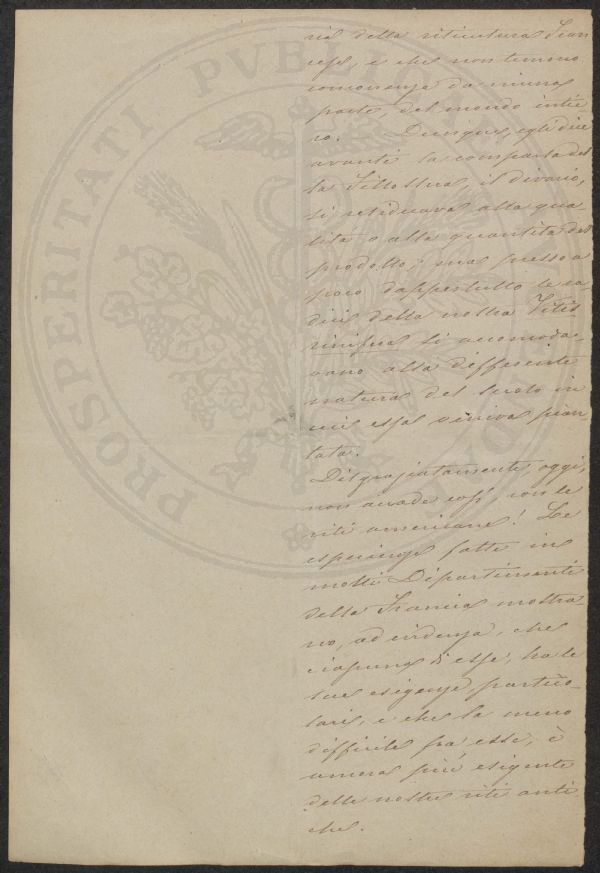 PROSPERITATI PVBLICAE
ria della viticultura fran
cese, e che non temono
concorrenza da niuna
parte, del mondo intie-
ro. Dunque, egli dice
avanti la comparsa del
la Fillossera, il divario,
si riduceva alla qua
lità o alla quantità del
prodotto; ma presso a
poco dappertutto le ra
dici della nostra Vitis
vinifera si accomoda-
vano alla differente
natura del suolo in
cui essa veniva pian-
tata.
Disgraziatamente, oggi,
non accade così, con le
viti americane! Le
esperienze fatte in
molti Dipartimenti
della Francia mostra-
no, ad evidenza, che
ciascuna di esse, ha le
sue esigenze, partico-
lari, e che la meno
difficile fra esse, è
ancora più esigente
delle nostre viti anti
che.